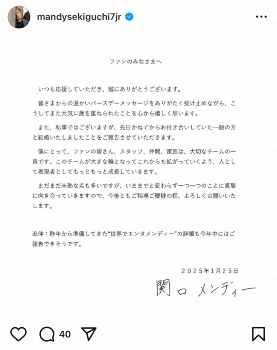 mandysekiguchi7jr
ファンのみなさまへ
いつも応援していただき、誠にありがとうございます。
皆さまからの温かいバースデーメッセージをありがたく受け止めながら、こ
うしてまた元気に歳を重ねられたことを心から嬉しく思います。
また、私事ではございますが、先日かねてからお付き合いしていた一般の方
と結婚いたしましたことをご報告させていただきます。
僕にとって、ファンの皆さん、スタッフ、仲間、家族は、大切なチームの一
員です。このチームが大きな輪となってこれからも拡がっていくよう、人とし
て表現者としてもっともっと成長していきます。
まだまだ未熟な点も多いですが、いままでと変わらず一つ一つのことに真摯
に向き合っていきますので、今後ともご指導ご鞭撻の程、よろしくお願いいた
します。
追伸：昨年から準備してきた"世界でエンタメンディー"の詳細も今年中にはご
報告できそうです。
2025年1月25日
関口 メンディー
40